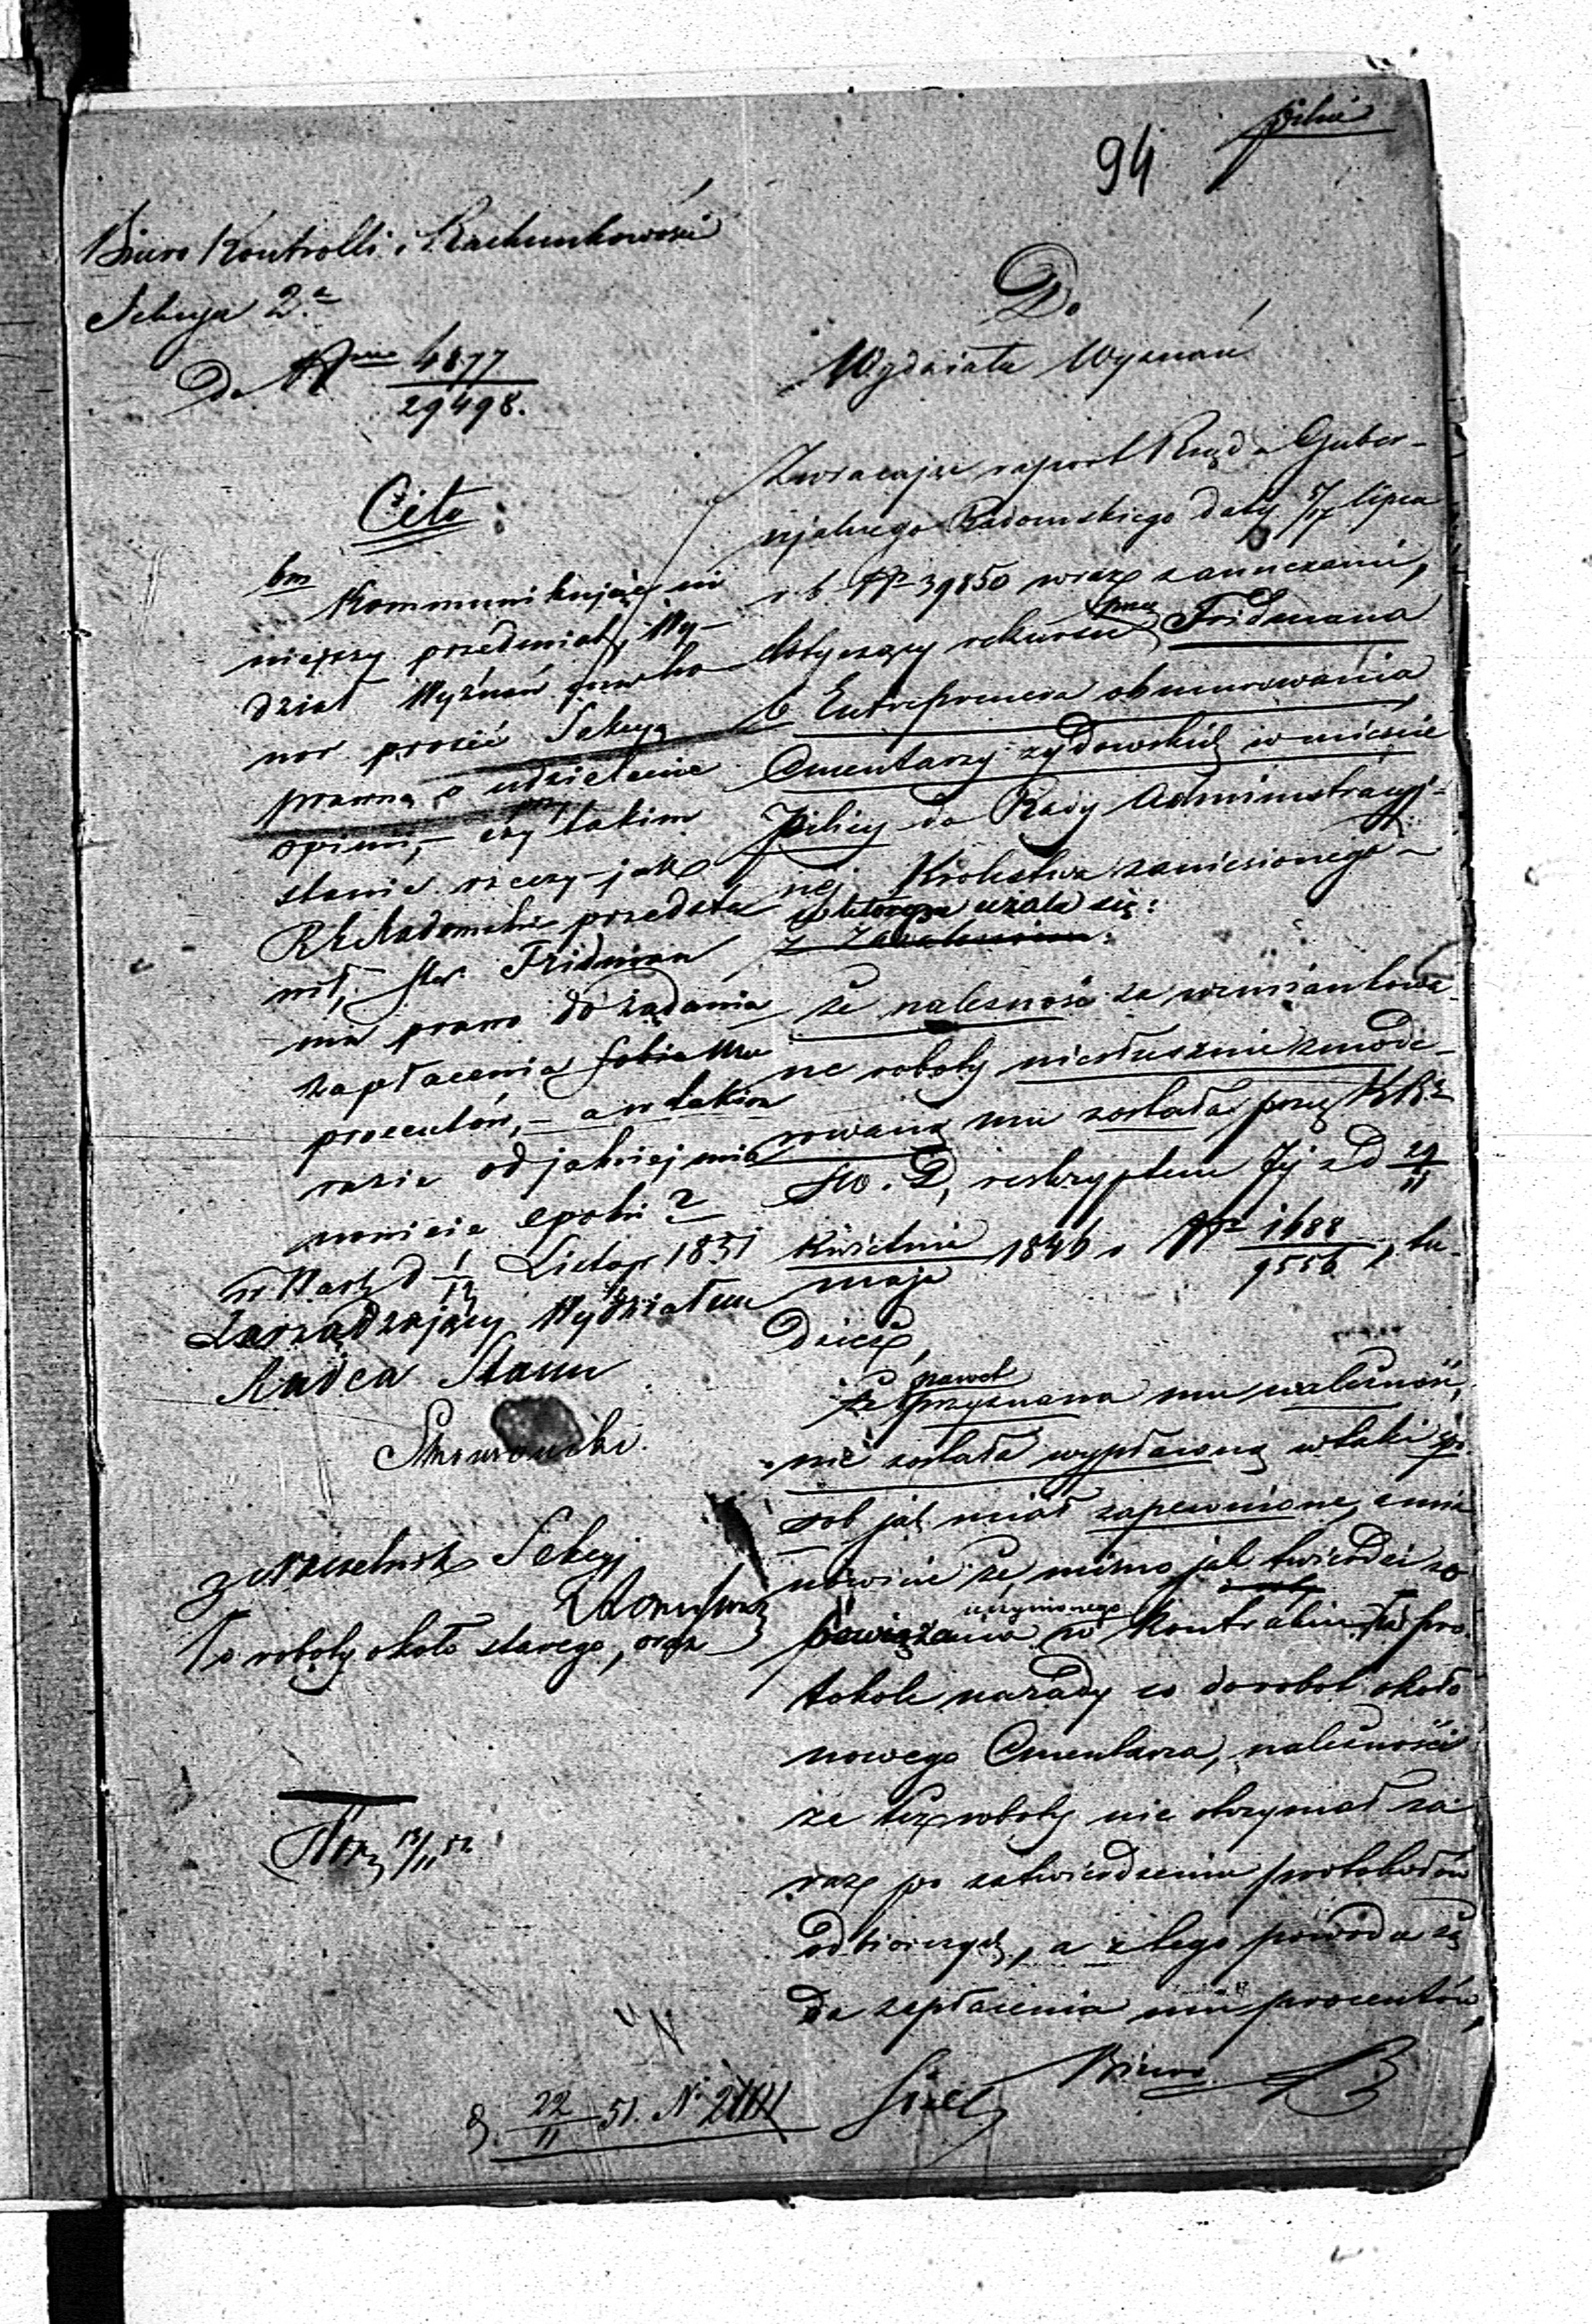 pilne
94
Biuro Kontrolli i Rachunkowości
Sekcya 2.a
Do Nru 4877
29498.
Cito:
Kommunikując ni
niejszy przedmiot, Wy-
dział Wyznań ma ho
nor prosić Sekcyą
prawną o udzielenie
opinii, - czy w takim
stanie rzeczy jak
RG Radomski przedsta
wił, Fridman
ma prawo do żądania
zapłacenia sobie
procentów, - a w takim
razie od jakiej mia
nowicie epoki?
w Warsz d 1/13 Listop 1851
Zarządzający Wydziałem
Radca Stanu
Naczelnik Sekcyi
To roboty około starego, oraz
13/11 51
d. 22/11 51. N
Do
Wydziału Wyznań
Zwracając raport Rządu Guber-
njalnego Radomskiego daty 5/17 lipca
r. b. Nr 39850 wraz z annexami,
dotyczący rekursu przez Fridmana
Entreprenera obmurowania
Cmentarzy żydowskich w mieście
Pilicy do Rady Administracyj-
nej Królestwa zaniesionego
w którym użala się:
że należność za wzmiankowa-
ne roboty niesłusznie zmode-
rowaną mu została przez KR
S.W. D, reskryptem Jej z d 29/11
kwietnia/maja 1846 r Nr 1688/9556, tu-
dzież,
że nawet przyznana mu należność,
nie została wypłaconą w taki spo
sob jak miał zapewnione, a mia
nowicie że, mimo jak twierdzi zo
bowiązania uczynionego w kontrakcie i w pro-
tokole narady co do robot około
nowego Cmentarza, należności
za też roboty nie otrzymał za-
raz po zatwierdzeniu protokołów
odbiorczych, a z tego powodu żą
da zapłacenia mu procentów,
Biuro